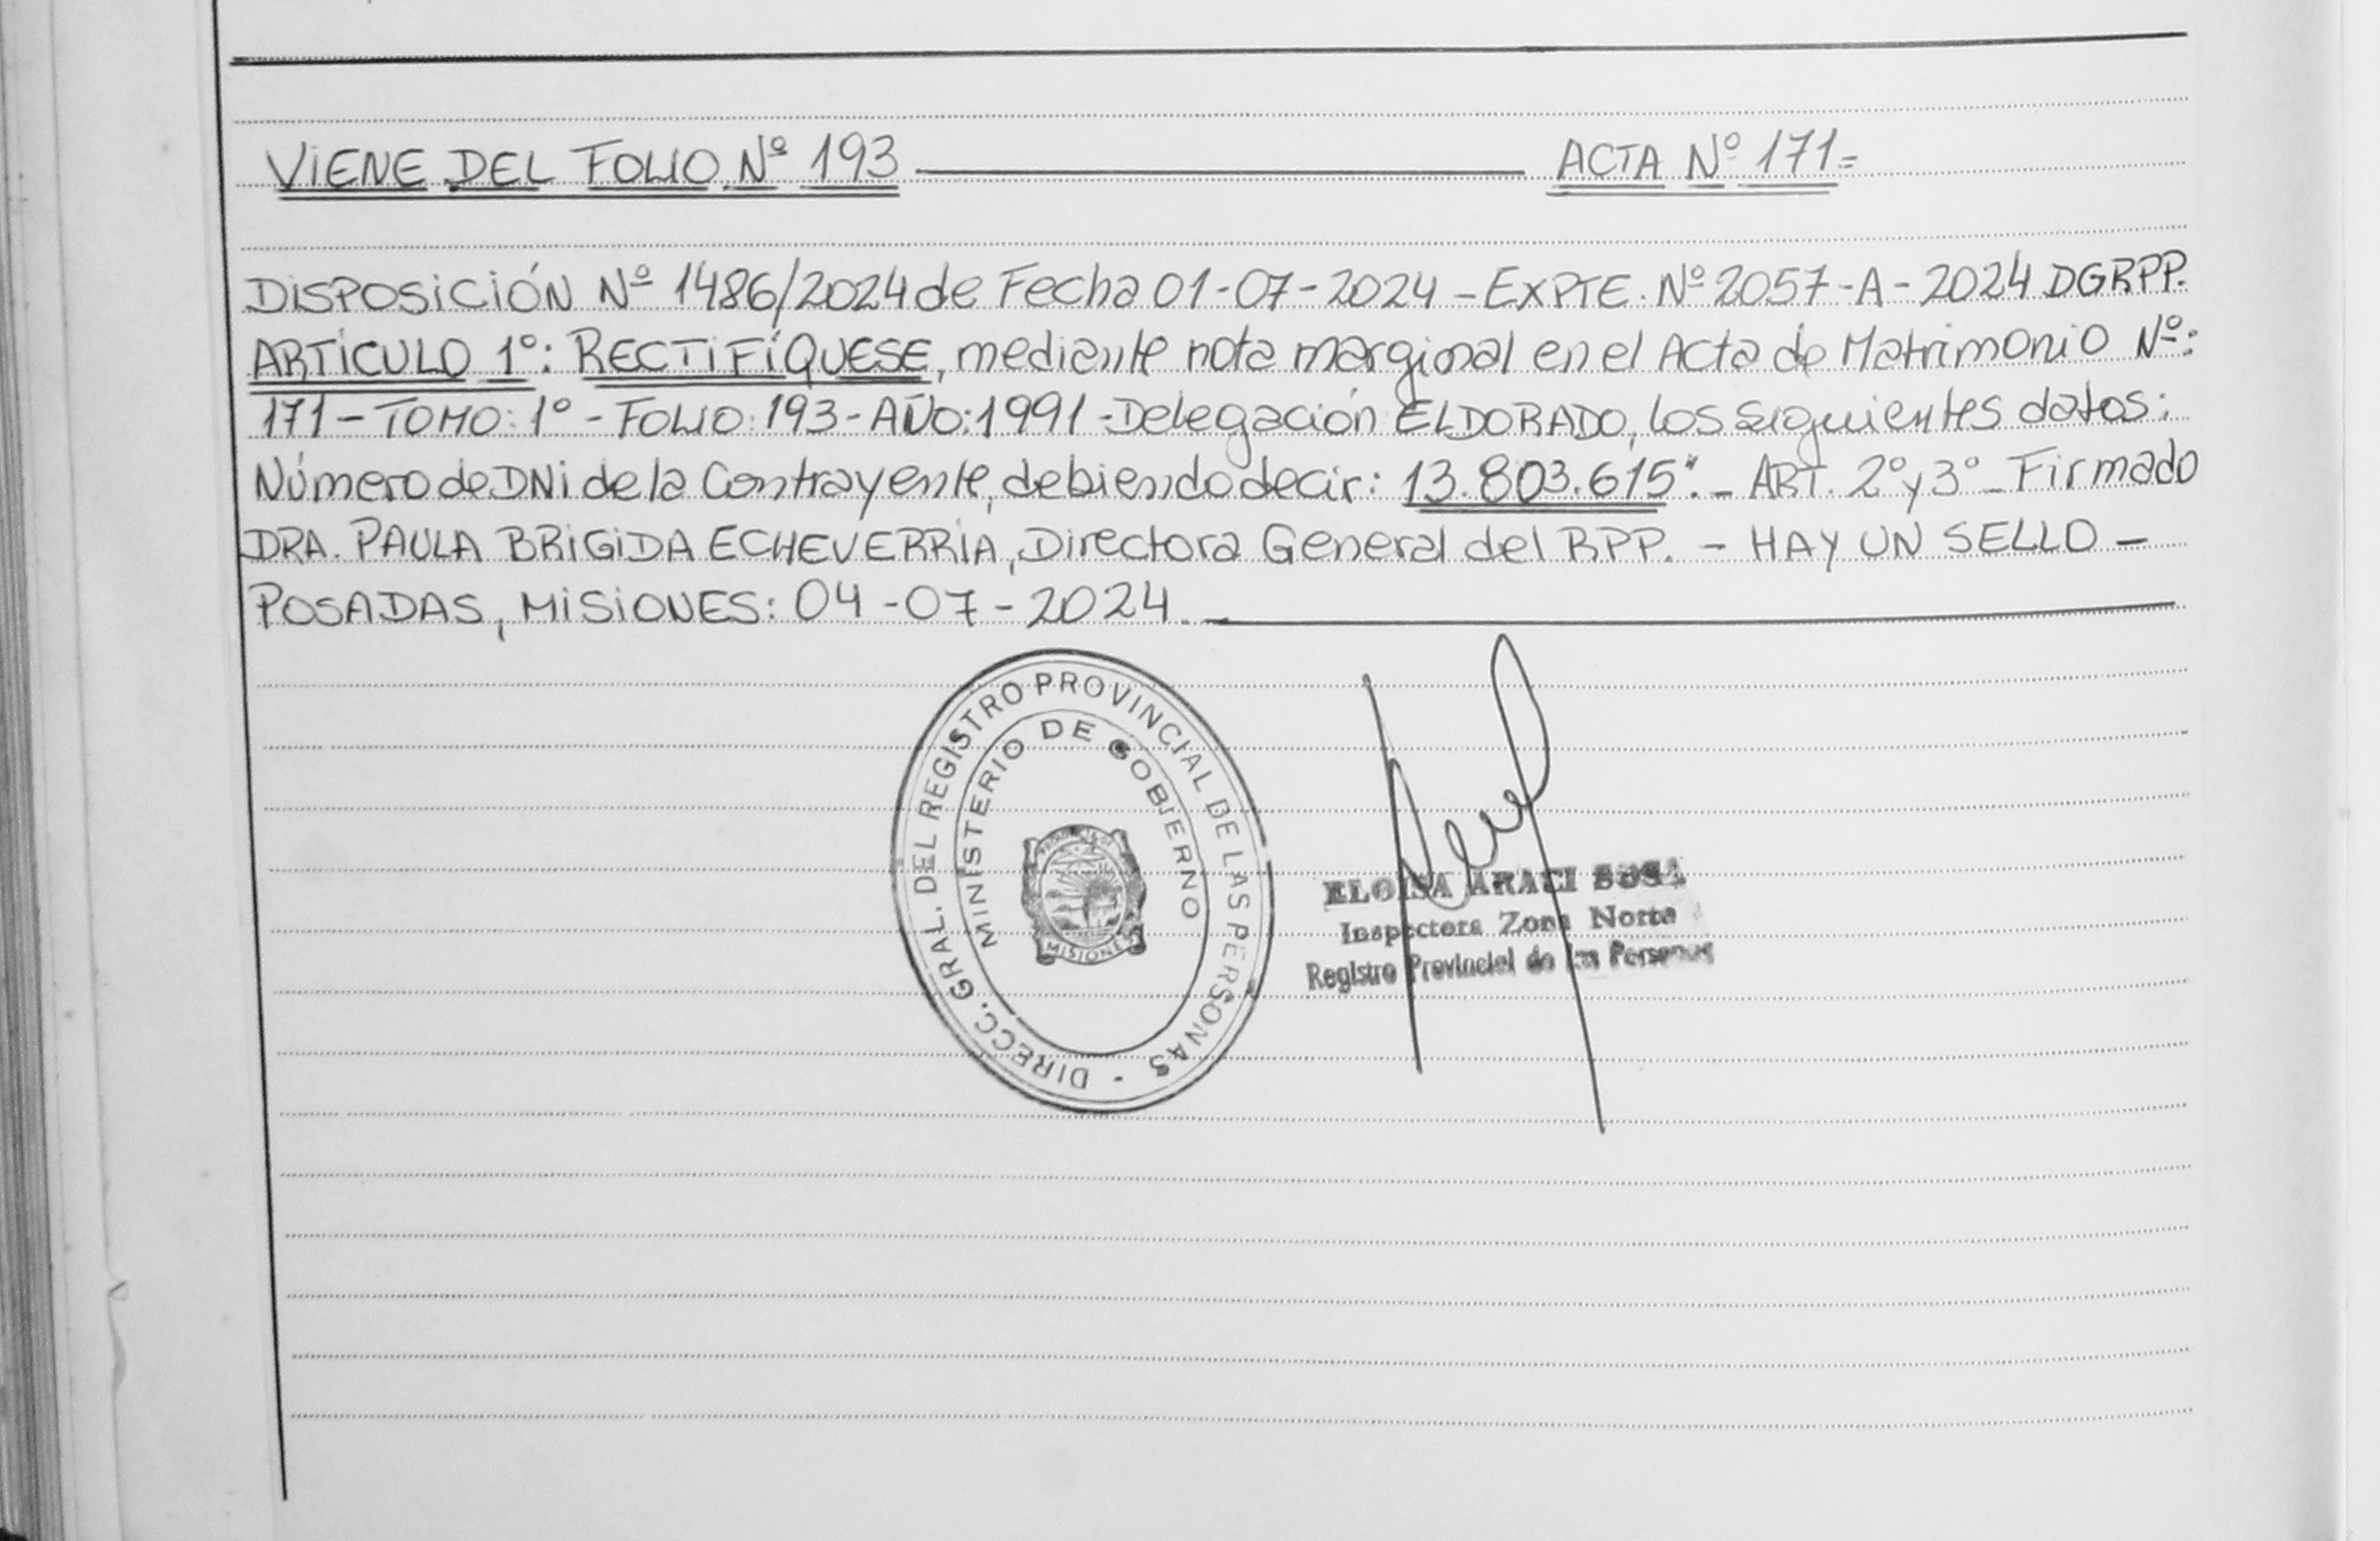 VIENE DEL FOLIO Nº 193 ACTA Nº 171=
DISPOSICIÓN Nº 1486/2024 de Fecha 01-07-2024 - EXPTE. Nº 2057-A-2024 DGRPP.
ARTÍCULO 1º: RECTIFÍQUESE, mediante nota marginal en el Acta de Matrimonio Nº:
171 - TOMO: 1º - FOLIO: 193 - AÑO: 1991 - Delegación ELDORADO, los siguientes datos:
Número de DNI de la Contrayente, debiendo decir: 13.803.615". - ART. 2º y 3º - Firmado
DRA. PAULA BRIGIDA ECHEVERRÍA, Directora General del RPP. - HAY UN SELLO -
POSADAS, MISIONES: 04-07-2024.
DIRECC. GRAL. DEL REGISTRO PROVINCIAL DE LAS PERSONAS -
MINISTERIO DE GOBIERNO
MISIONES
ELOISA ARACI SOSA
Inspectora Zona Norte
Registro Provincial de las Personas